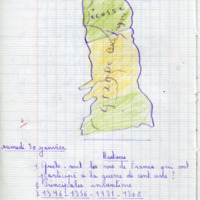 Ecosse
Grande Bretagne
samedi 30 janvier
Histoire
1 Quels sont les rois de France qui ont
participé à la guerre de cent ans ?
2 Principales inventions
3 1346 - 1356 - 1431 -